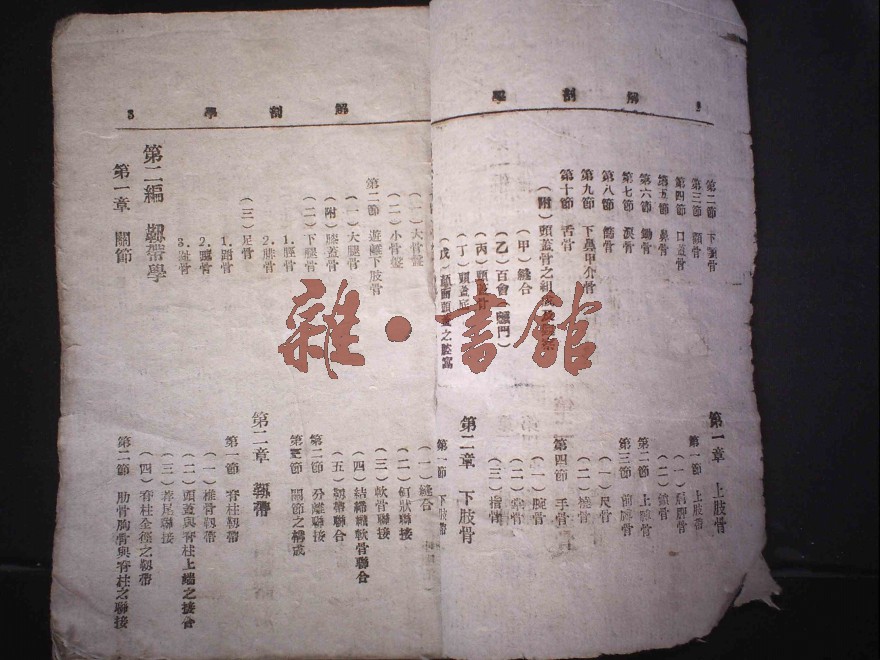 學 剖 解
第二節 下顎骨
第三節 顴骨
第四節 口蓋骨
第五節 鼻骨
第六節 鋤骨
第七節 淚骨
第八節 篩骨
第九節 下鼻甲介骨
第十節 舌骨
（附）頭蓋骨之組
（甲）縫合
（乙）百會（顖門）
（丙）頭蓋
（丁）頭蓋底
（戊）顏面頭蓋之腔窩
第一章 上肢骨
第一節 上肢帶
（一）肩胛骨
（二）鎖骨
第二節 上膊骨
第三節 前膊骨
（一）尺骨
（二）橈骨
第四節 手骨
（一）腕骨
（二）掌骨
（三）指骨
第二章 下肢骨
第一節 下肢帶
3 學 剖 解
（一）大骨盤
（二）小骨盤
第二節 遊離下肢骨
（一）大腿骨
（附）膝蓋骨
（二）下腿骨
1.脛骨
2.腓骨
（三）足骨
1.跗骨
2.蹠骨
3.趾骨
第二編 靱帶學
第一章 關節
（一）縫合
（二）釘狀聯接
（三）軟骨聯接
（四）結締織軟骨聯合
（五）靱帶聯合
第二節 分離聯接
第三節 關節之構成
第二章 靱帶
第一節 脊柱靱帶
（一）椎骨靱帶
（二）頭蓋與脊柱上端之接合
（三）荐尾聯接
（四）脊柱全徑之靱帶
第二節 肋骨胸骨與脊柱之聯接
雜·書館